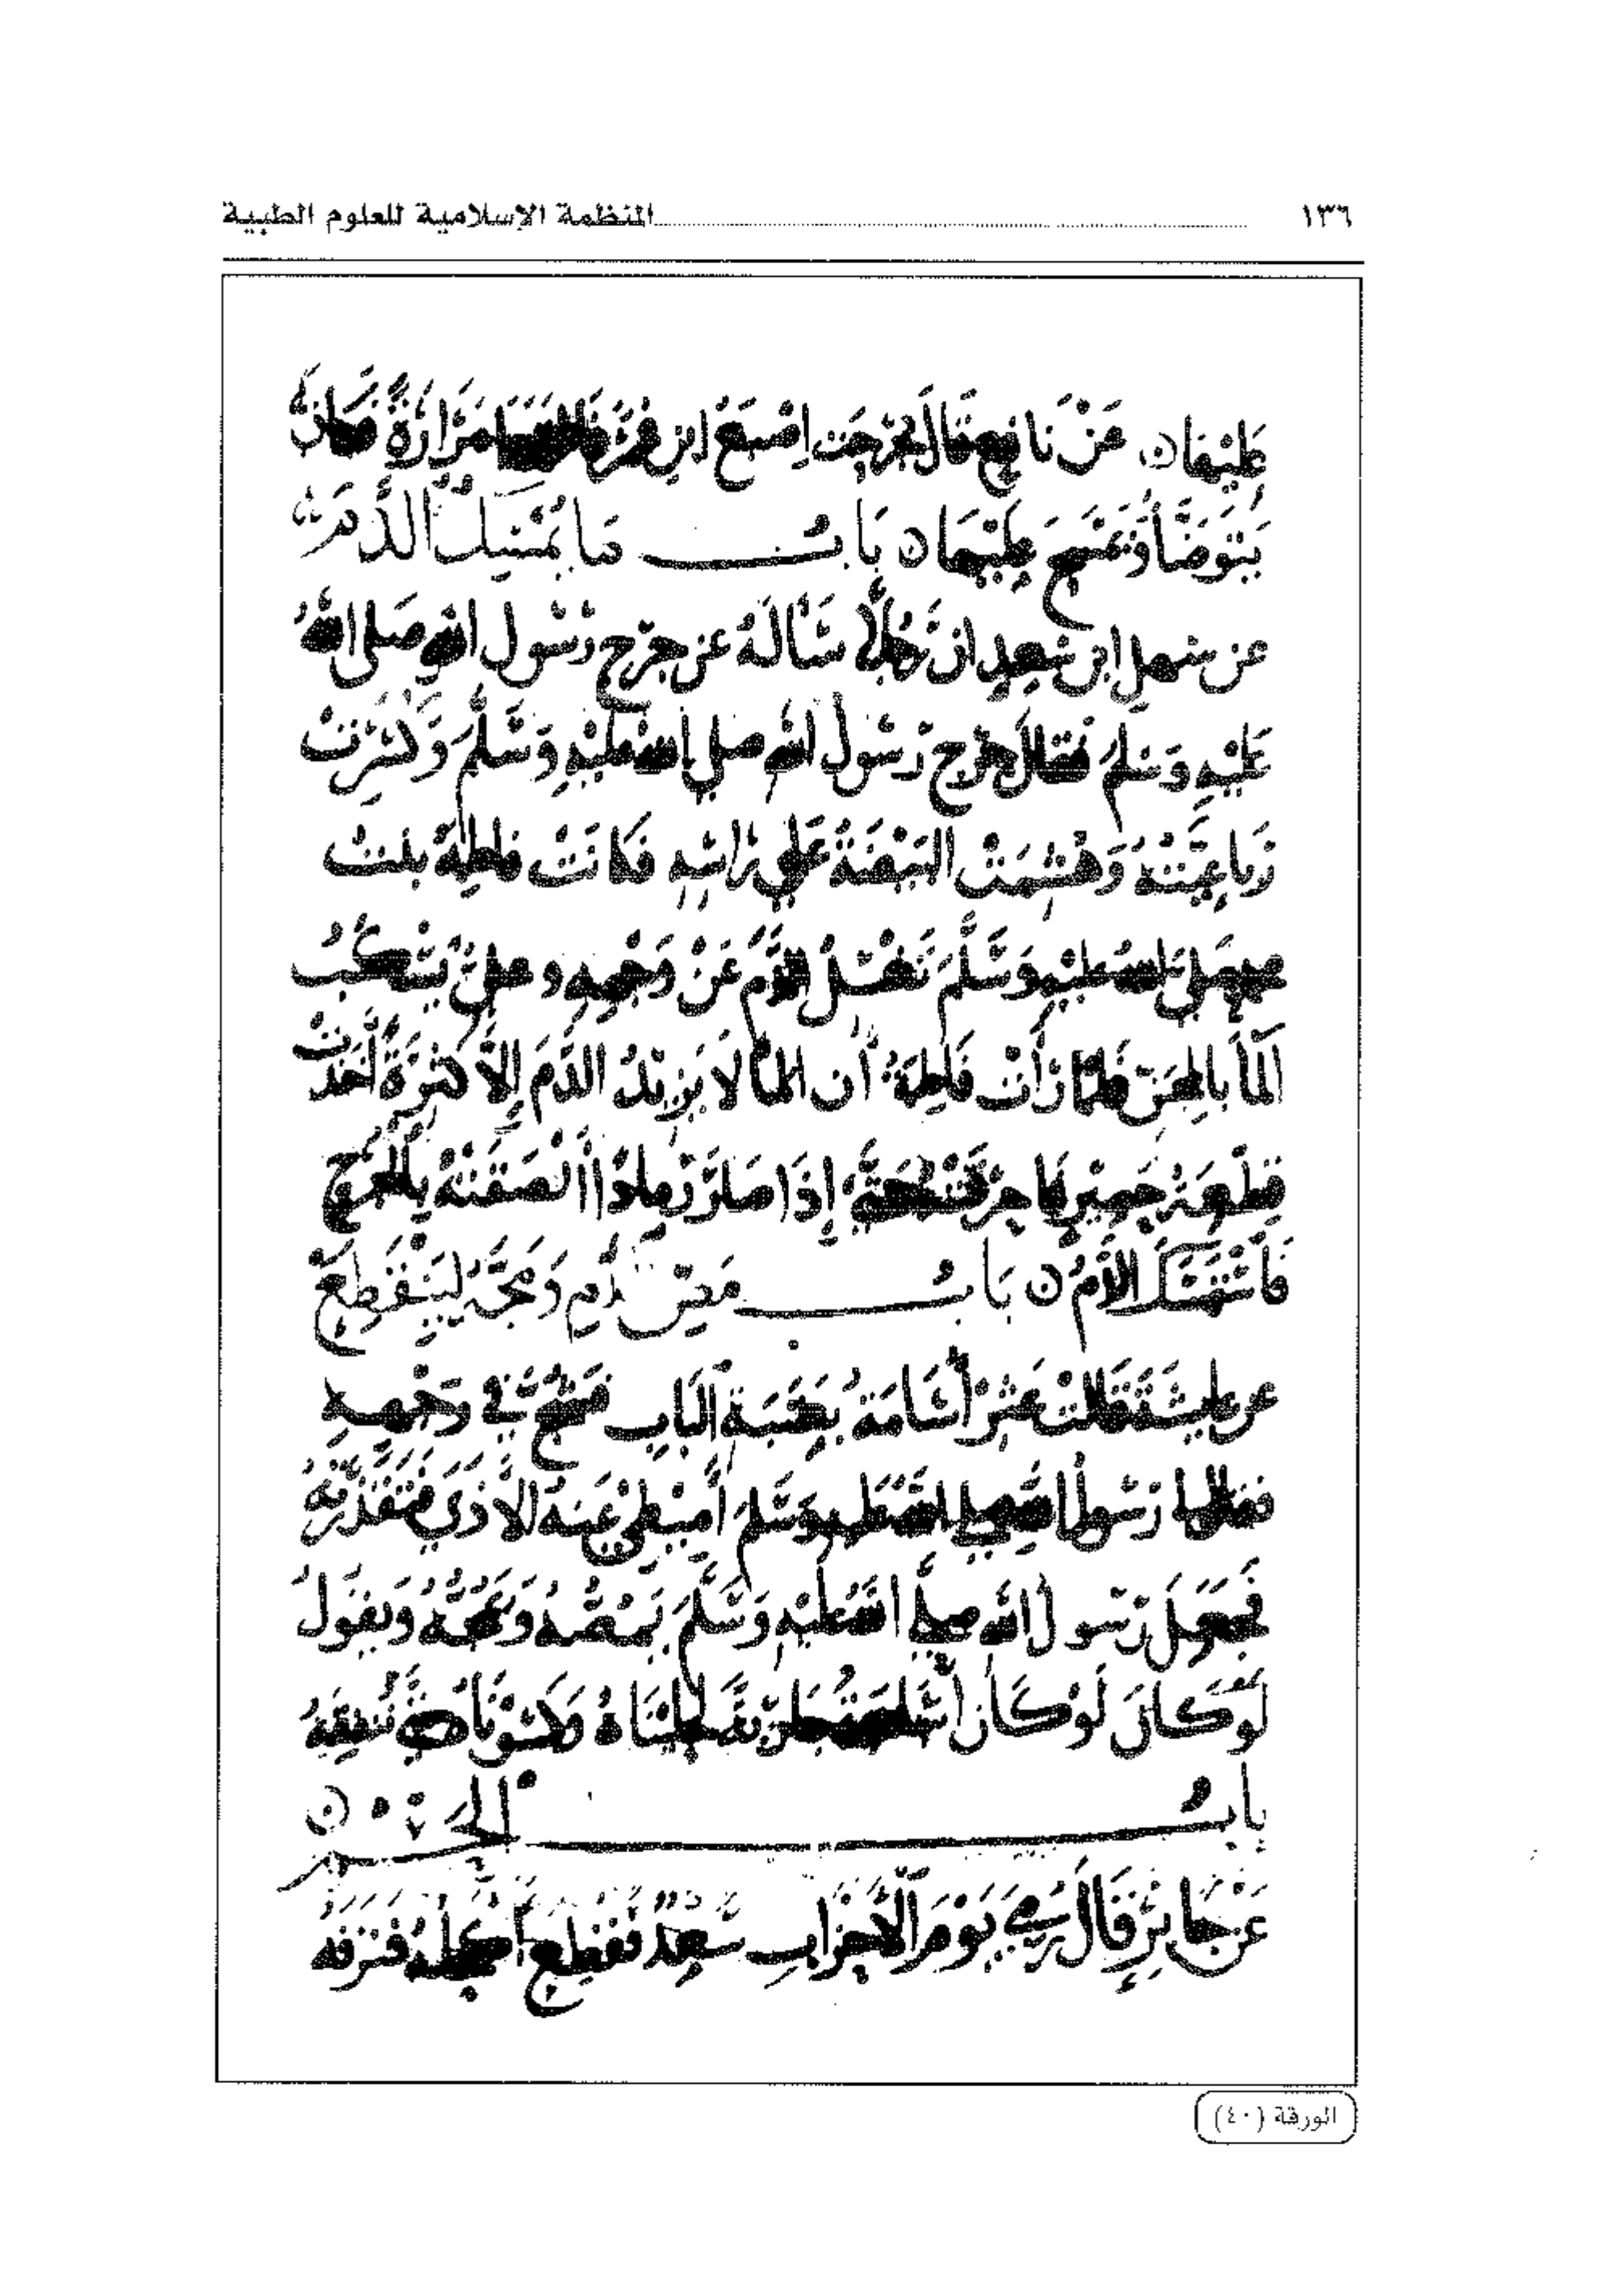 ١٣٦ المنظمة الإسلامية للعلوم الطبية
عليها ن عَنْ نَافِع قَالَ جُرحَت اِصْبَعُ ابن عُمَرَ فَالقمها مَرَارَةً فكان
يَتَوَضَّأُ وَيَمْسَح عليها ن بَابُ مَا يُمْسِك الدَّم
عن سهل ابن سَعد ان رَجُلًا سَأَلَهُ عن جرْح رَسُول الله صَلى اللهُ
عَليْهِ وَسَلم فقال جُرح رَسُول الله صلى الله عليْهِ وَسَلَّمَ وَكسِرَتْ
رَبَاعِيَتهُ وَهُشِمَتْ البَيْضَةُ عَلى رَاسِهِ فكَانَتْ فاطِمَةُ بنتُ
صلى الله عليْهِ وَسَلَّمَ تَغْسلُ الدَّمَ عَنْ وَجْهِهِ وعلىّ يَسْكبُ
اَلمَأَ بالمجَن فلمّا رَأَتْ فَاطِمَةُ أن المأ لَا يَزِيدُ الدَّمَ اِلَّا كثْرَةً أَخَذت
قِطْعَةُ حَصِيْرٍ فَاحرَقَتْهُ حَتَّى إِذَا صَارَ رَمادًا ألْصَقَتْهُ بِالجرْح
فَاسْتَمْسَكَ الدَّمُ ن بَابُ مَصّ الدَّمِ وَمَجّهُ لِيَنْقَطِع
عن عايشَة قَالتْ عَثرَ أُسَامَةُ بِعَتَبَةِ اَلبَاب فشُجَّ فى وَجْهِهِ
فقال لها رَسُول الله صلى الله عليه وسَلم أَمِيْطِى عَنهُ الأَذَى فَتَقَذَّرْتهُ
فَجَعَلَ رَسُول الله صلى اللهُ عَليْهِ وَسَلَّمَ يَمُصُّهُ وَيَمُجُّهُ وَيقولُ
لَوْ كَانَ لَوْ كَان أُسَامَةُ جَارِيَةً لحليْنَاهُ وَكسَوْنَاهُ حَتى نُنفِقَهُ
بابُ الحَسم ن
عَنْ جَابِرٍ قَالَ رُمِىَ يَوْمَ الْأَحْزَابِ سَعْدٌ فقطِع اكحلهُ فنزفه
الورقة (٤٠)